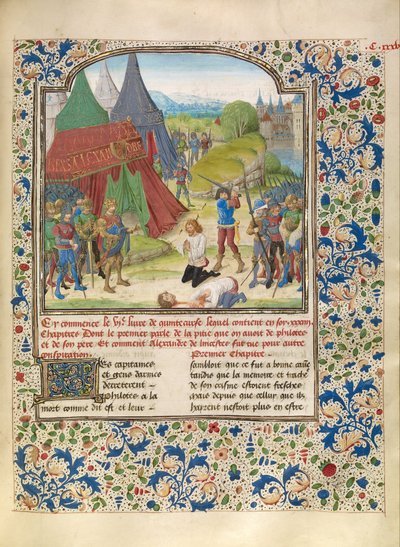 C. xxxv
Cy commence le vi.e livre de quintecurse lequel contient en soy xxxiii
Chapitres Dont le premier parle de la pitie que on avoit de philotes
et de son pere Et comment Alexandre de lincestes fut tue pour autre
conspiration.
Premier Chapitre
Les capitaines
et gens darmes
decreterent
Philotes a la
mort comme dit est et leur
sambloit que ce fut a bonne cause
tandis que la memoire et trache
de son crisme estoient fresches
mais depuis que cellui que ilz
haioent nestoit plus en estre